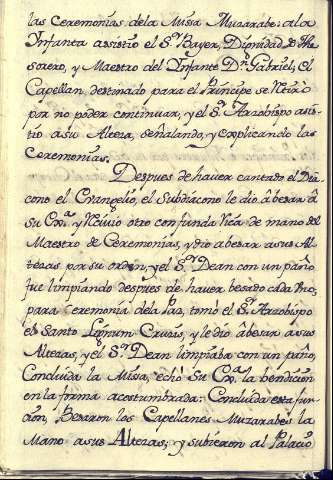 las Ceremonias dela Misa Muzarabe: ala
Ynfanta asistio el S.r Bayer, Dignidad de The
sorero, y Maestro del Ynfante D.n Gabriel; El
Capellan, destinado para el Principe se Retirò
por no poder continuar, y el S.r Arzobispo asis-
tio a su Alteza, señalando, y explicando las
Ceremonias.
Despues de haver cantado el Dia-
cono el Evangelio, el Subdiacono le dio à besar à
su Ex.a y Recivio otro con funda rica de mano del
Maestro de Ceremonias, y dio a besar a sus Al-
tezas por su orden, y el S.r Dean con un paño
fue limpiando despues de haver besado cada uno;
para ceremonia dela Paz, tomò el S.r Arzobispo
el Santo Lignum Crucis, y le dio à besar a sus
Altezas, y el S.r Dean limpiaba con un paño,
Concluida la Misa, echò Su Ex.a la bendicion
en la forma acostumbrada: Concluida esta fun-
cion, Besaron los Capellanes Muzarabes la
Mano a sus Altezas, y subieron al Palacio